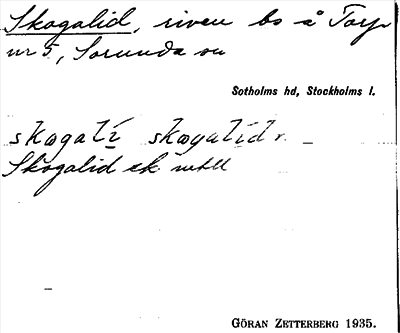 Skogalid, riven bs å Torp
nr 5, Sorunda sn
Sotholms hd, Stockholms l.
skogalí skogalíd
Skogalid ek
GÖRAN ZETTERBERG 1935.